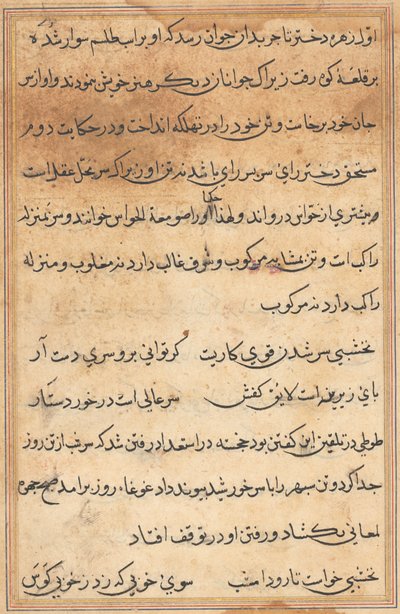 اول زهره دختر تاجر بدان جوان رسد که او بر اسب طلسم سوار شده
بر قلعهٔ کوه رفت زیراک جوانان دیگر هنر خویش نمودند و او از سر
جان خود برخاست و تن خود را در تهلکه انداخت و در حکایت دوم
مستحق دختر رای سر پسر رای باشد نه تن او زیراکه سر محل عقل است
و بیشتری از حواس درو اند و لهذا حکما او را صومعة الحواس خوانند و سر بمنزله
راکب است و تن بمثابه مرکوب و شرف غالب دارد نه مغلوب و منزله
راکب دارد نه مرکوب
نخشبی سر شدن قوی کاریست گر توانی برو سری دست آر
پای زیرین است لایق کفش سر عالی است در خورد ستار
طوطی در تلقین این گفتن بود خجسته در استعداد رفتن شد که سر شب از تن روز
جدا کرد و تن سپهر را با سر خورشید پیوند داد غوغاء روز برآمد صبح چهره
لمعانی بگشاد و رفتن او در توقف افتاد
نخشبی خواست تا رود امشب سوی خوبی که زد ز خوبی کوس